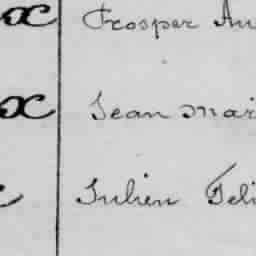 Prosper Au
Jean Mari
Julien Feli